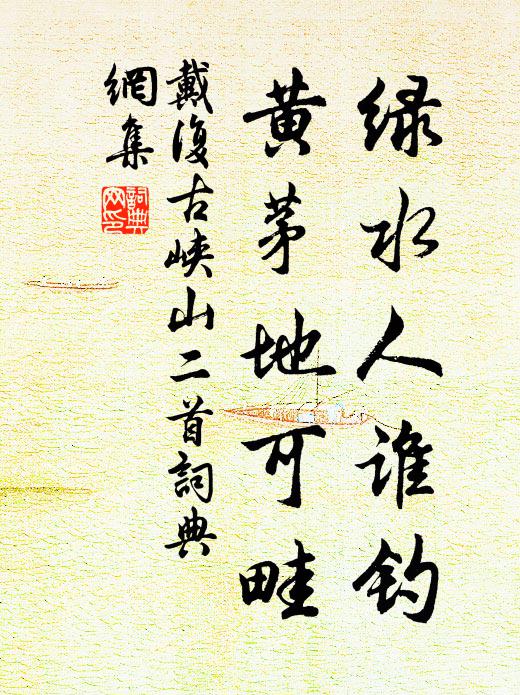 绿水人谁钓
黄茅地可畦
戴復古峡山二首詞典
網集
詞典网印